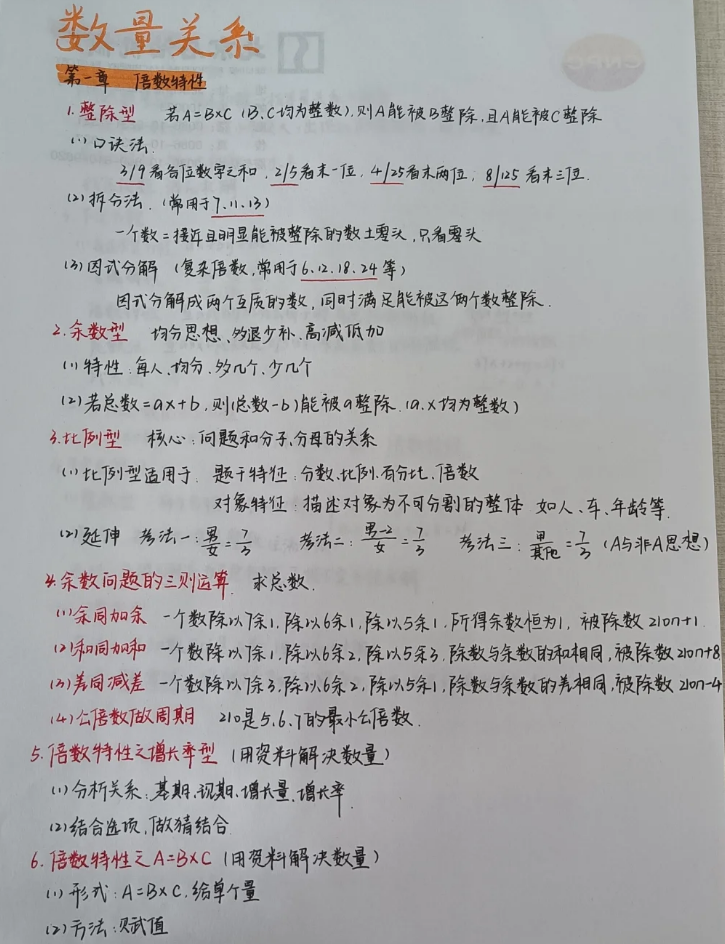 数量关系
第一章 倍数特性
1.整除型 若A=B×C(B、C均为整数),则A能被B整除,且A能被C整除
(1)口诀法.
3/9看各位数字之和,2/5看末一位,4/25看末两位,8/125看末三位.
(2)拆分法.(常用于7.11.13)
一个数=接近且明显能被整除的数±零头,只看零头
(3)因式分解 (复杂倍数,常用于6.12.18.24等)
因式分解成两个互质的数,同时满足能被这两个数整除.
2.余数型 均分思想、多退少补、高减低加
(1)特性:每人、均分、多几个、少几个
(2)若总数=ax+b,则(总数-b)能被a整除.(a.x均为整数)
3.比例型 核心:问题和分子、分母的关系
(1)比例型适用于. 题干特征:分数、比例、百分比、倍数
对象特征:描述对象为不可分割的整体 如人、车、年龄等.
(2)延伸 考法一:男/女=7/3 考法二:男-2/女=7/3 考法三:甲/其他=7/3 (A与非A思想)
4.余数问题的三则运算. 求总数.
(1)余同加余 一个数除以7余1,除以6余1,除以5余1,所得余数恒为1,被除数210n+1
(2)和同加和 一个数除以7余1,除以6余2,除以5余3,除数与余数的和相同,被除数210n+8
(3)差同减差 一个数除以7余3,除以6余2,除以5余1,除数与余数的差相同,被除数210n-4
(4)公倍数做周期 210是5.6.7的最小公倍数.
5.倍数特性之增长率型 (用资料解决数量)
(1)分析关系:基期、现期、增长量、增长率
(2)结合选项,做猜结合
6.倍数特性之A=B×C (用资料解决数量)
(1)形式:A=B×C,给单个量
(2)方法:赋值